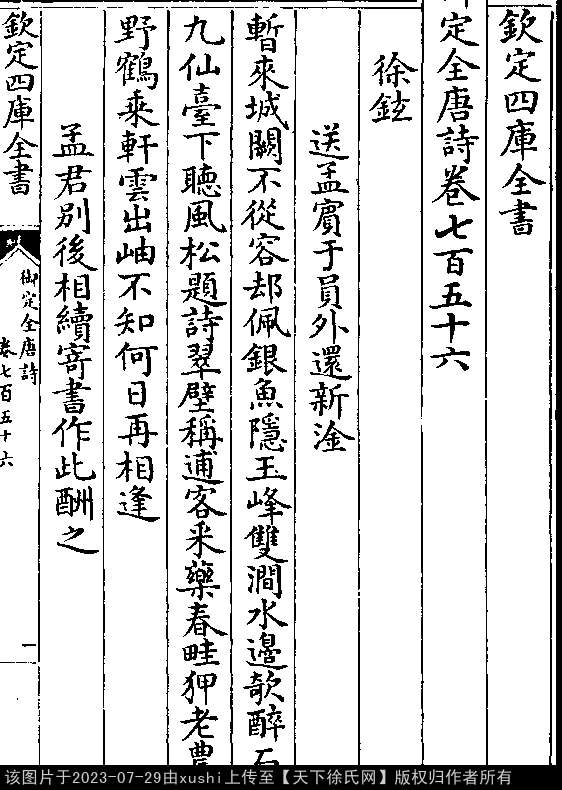 欽定四庫全書
定全唐詩卷七百五十六
徐鉉
送孟賓于員外還新淦
暫來城闕不從容却佩銀魚隱玉峰雙澗水邊欹醉石
九仙臺下聽風松題詩翠壁稱逋客采藥春畦狎老農
野鶴乘軒雲出岫不知何日再相逢
孟君別後相續寄書作此酬之
欽定四庫全書
御定全唐詩
卷七百五十六
一
该图片于2023-07-29由xushi上传至【天下徐氏网】版权归作者所有